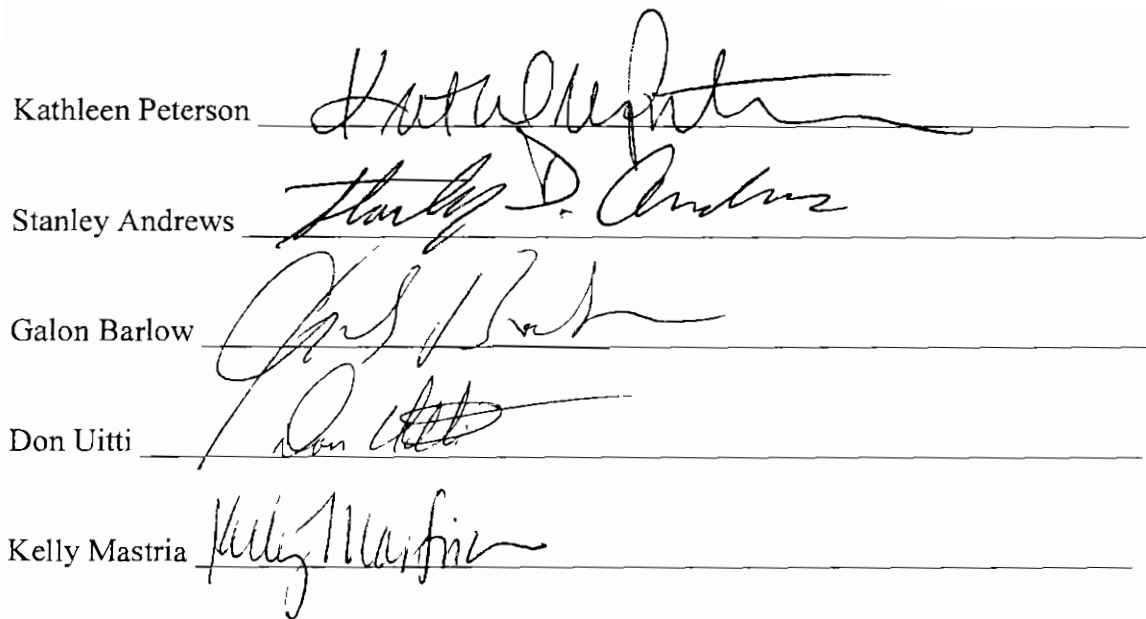 Kathleen Peterson
Stanley Andrews Stanley D. Andrews
Galon Barlow
Don Uitti Don Uitti
Kelly Mastria Kelly Mastria